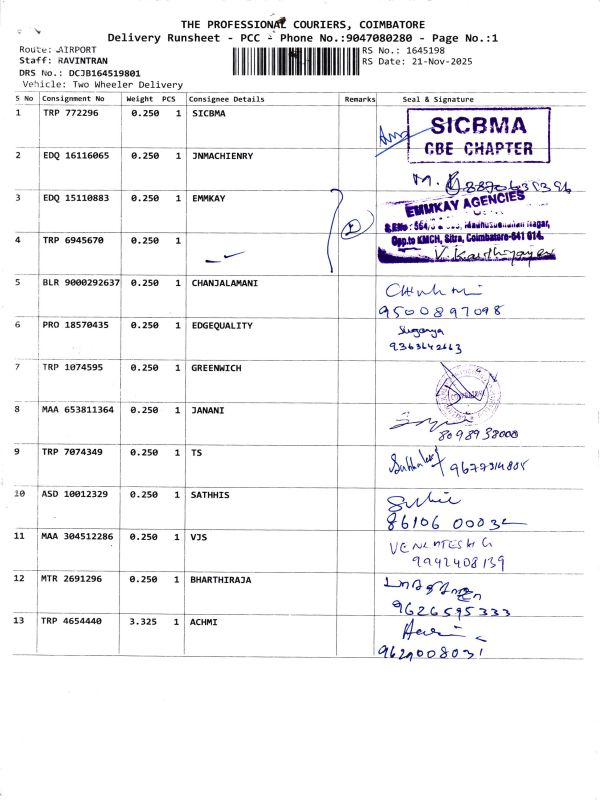 THE PROFESSIONAL COURIERS, COIMBATORE
Delivery Runsheet - PCC - Phone No.:9047080280 - Page No.:1
Route: AIRPORT
RS No.: 1645198
Staff: RAVINTRAN
RS Date: 21-Nov-2025
DRS No.: DCJB164519801
Vehicle: Two Wheeler Delivery
S No Consignment No Weight PCS Consignee Details Remarks Seal & Signature
1 TRP 772296 0.250 1 SICBMA
SICBMA
CBE CHAPTER
2 EDQ 16116065 0.250 1 JNMACHIENRY
3 EDQ 15110883 0.250 1 EMMKAY
EMMKAY AGENCIES
4 TRP 6945670 0.250 1
Opp.to KMCH, Sitra, Coimbatore-641 014.
V. Karthijayan
5 BLR 9000292637 0.250 1 CHANJALAMANI
9500897098
6 PRO 18570435 0.250 1 EDGEQUALITY
Suganya
9363642663
7 TRP 1074595 0.250 1 GREENWICH
8 MAA 653811364 0.250 1 JANANI
8098938000
9 TRP 7074349 0.250 1 TS
9677314805
10 ASD 10012329 0.250 1 SATHHIS
86106 00032
11 MAA 304512286 0.250 1 VJS
VENKATESH G
9942408139
12 MTR 2691296 0.250 1 BHARTHIRAJA
9626595333
13 TRP 4654440 3.325 1 ACHMI
9629008031